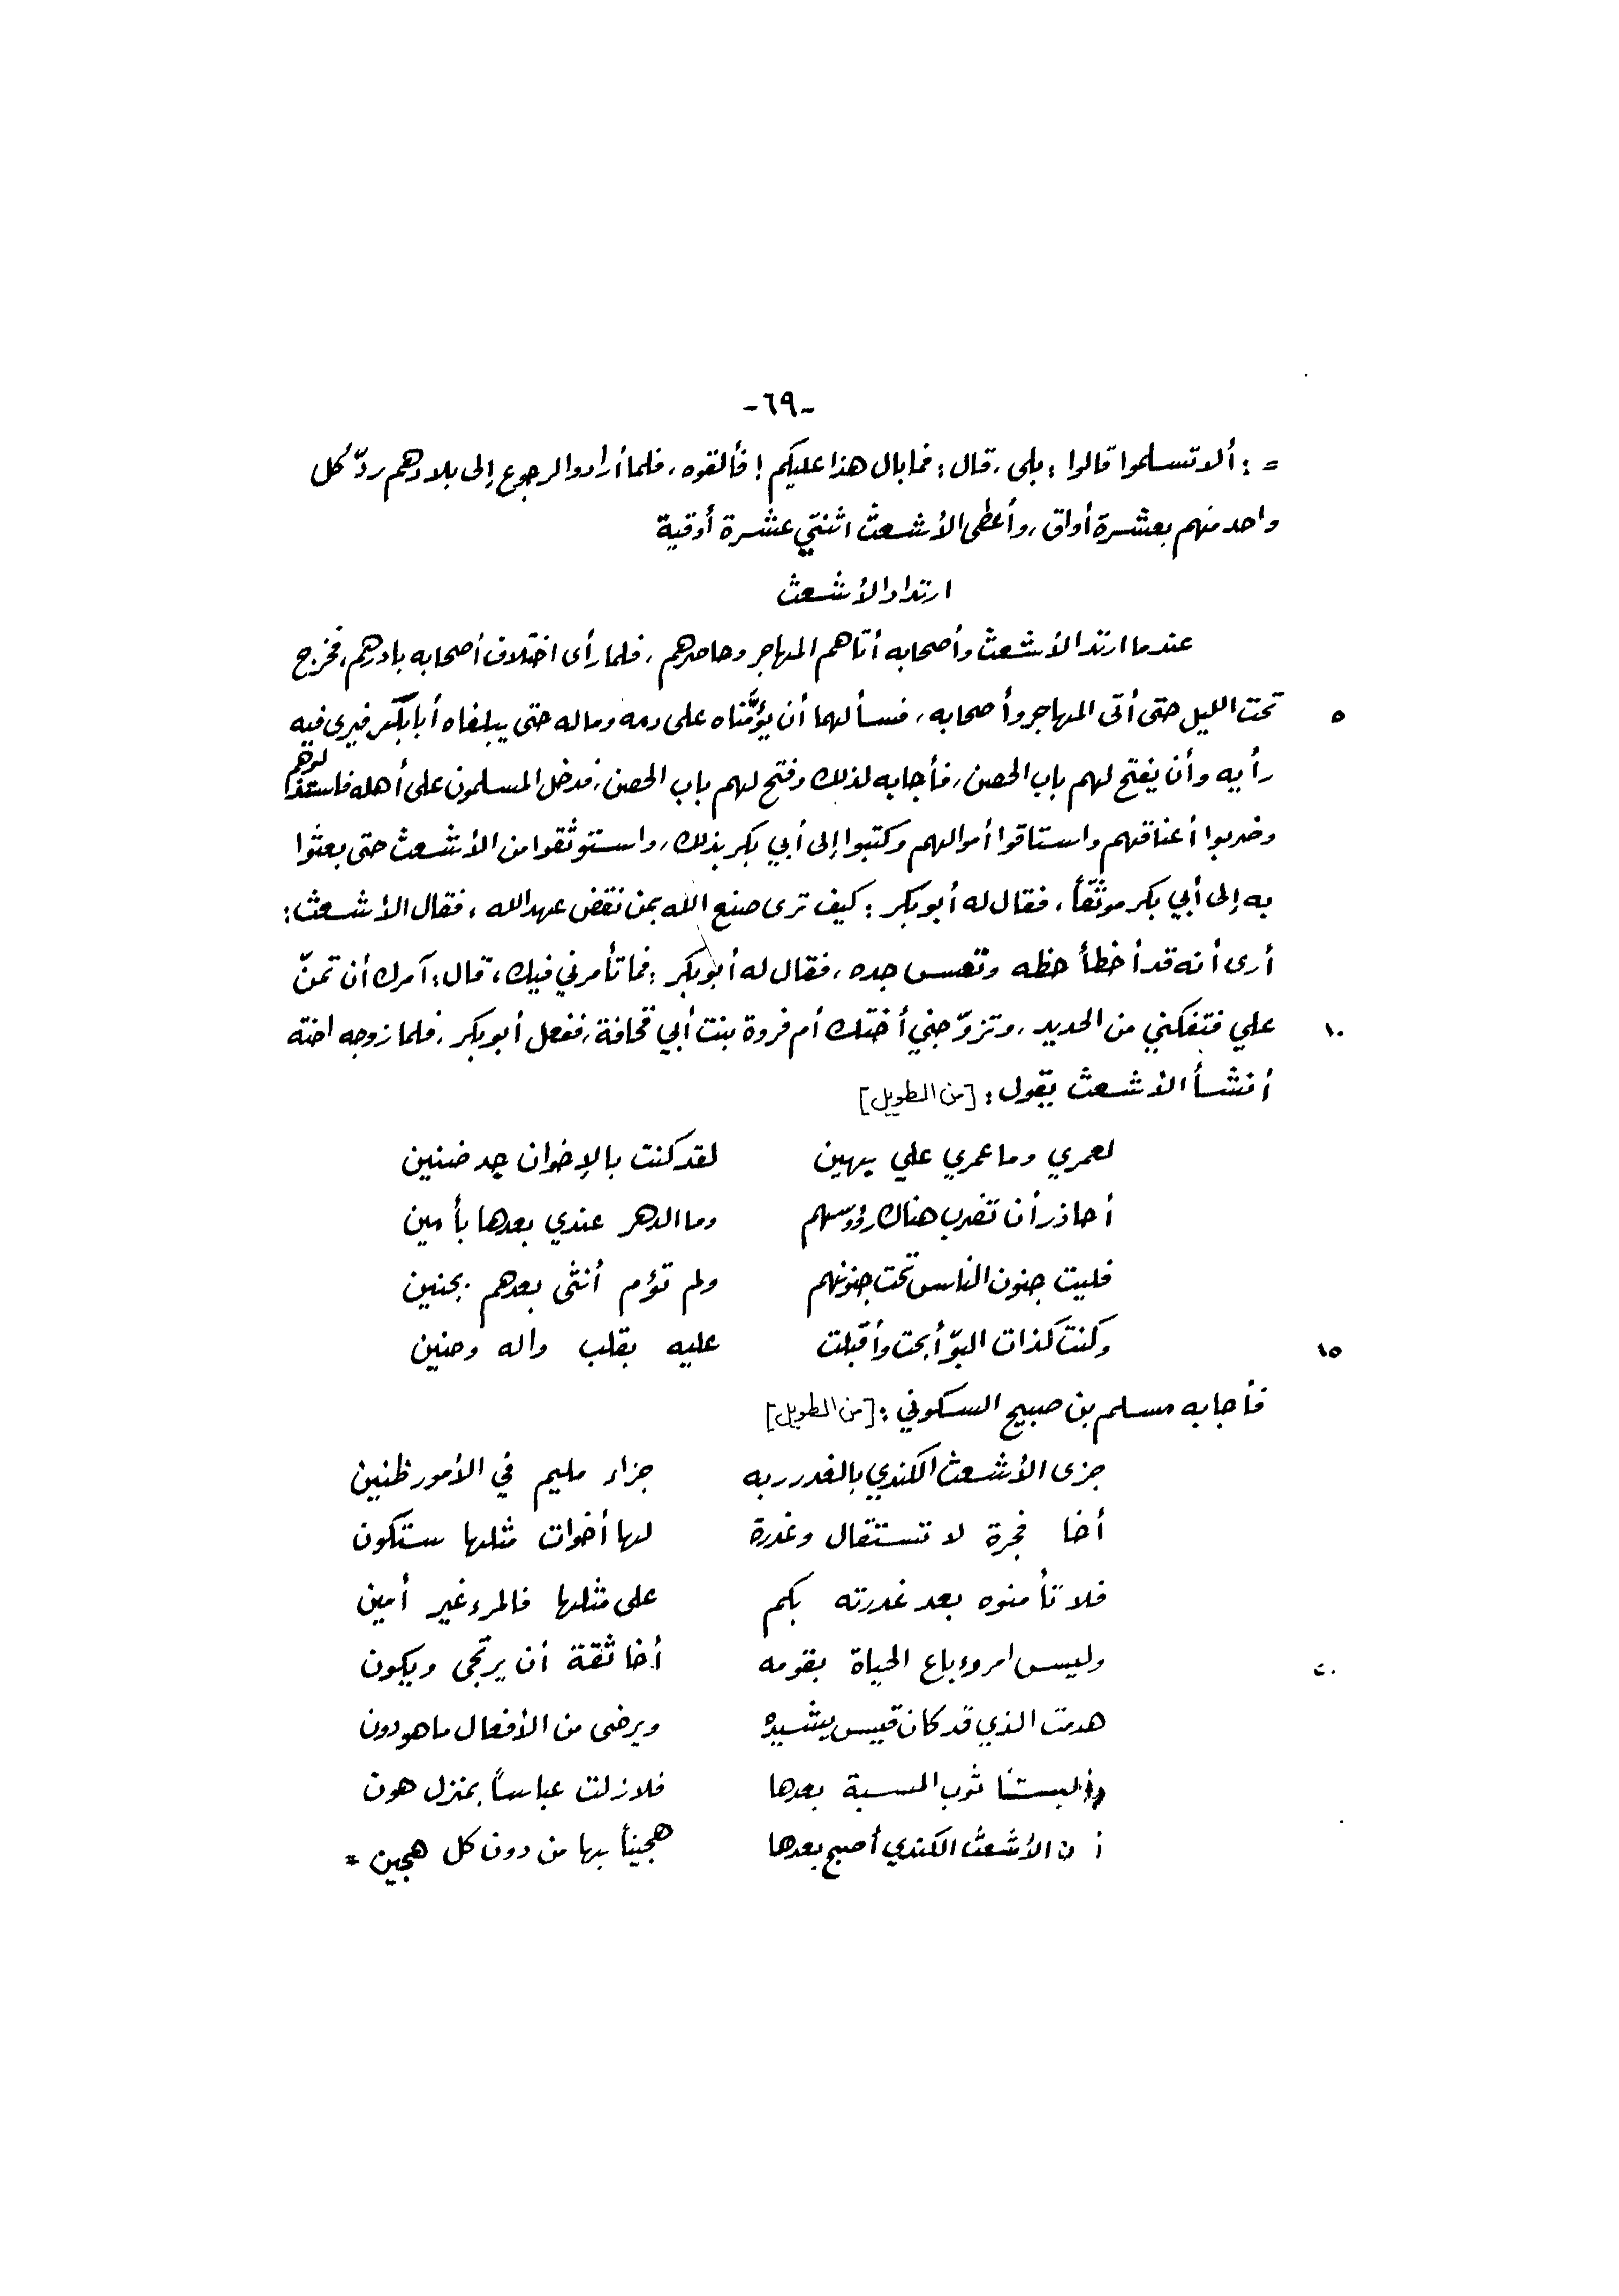 -٦٩-
= : ألا تسلموا قالوا : بلى ، قال : فما بال هذا عليكم ! فألقوه ، فلما أرادوا الرجوع إلى بلادهم ردّ كل
واحد منهم بعشرة أواق ، وأعطى الأشعث اثنتي عشرة أوقية
ارتداد الأشعث
عندما ارتد الأشعث وأصحابه أتاهم المهاجر وحاصرهم ، فلما رأى اختلاف أصحابه بادرهم ، فخرج
٥ تحت الليل حتى أتى المهاجر وأصحابه ، فسألهما أن يؤمّناه على دمه وماله حتى يبلغاه أبا بكر فيرى فيه
رأيه وأن يفتح لهم باب الحصن ، فأجابه لذلك وفتح لهم باب الحصن ، فدخل المسلمون على أهله فاستنزلوهم
وضربوا أعناقهم واستاقوا أموالهم وكتبوا إلى أبي بكر بذلك ، واستوثقوا من الأشعث حتى بعثوا
به إلى أبي بكر موثّقاً ، فقال له أبو بكر : كيف ترى صنع الله بمن نقض عهد الله ، فقال الأشعث :
أرى أنه قد أخطأ حظه وتعس جده ، فقال له أبو بكر : فما تأمرني فيك ، قال : آمرك أن تمنّ
١٠ علي فتفكني من الحديد ، وتزوّجني أختك أم فروة بنت أبي قحافة ، ففعل أبو بكر ، فلما زوجه اخته
أنشأ الأشعث يقول : [من الطويل]
لعمري وما عمري علي بهين لقد كنت بالإخوان جد ضنين
أحاذر أن تضرب هناك رؤوسهم وما الدهر عندي بعدها بأمين
فليت جنون الناس تحت جنونهم ولم تؤم أنثى بعدهم بجنين
١٥ وكنت كذات البوّ أبحت وأقبلت عليه بقلب واله وحنين
فأجابه مسلم بن صبيح السكوني : [من الطويل]
جزى الأشعث الكندي بالغدر ربه جزاء مليم في الأمور ظنين
أخا فجرة لا تستقال وغدرة لها أخوات مثلها ستكون
فلا تأمنوه بعد غدرته بكم على مثلها فالمرء غير أمين
٢٠ وليس امروء باع الحياة بقومه أخا ثقة أن يرتجى ويكون
هدمت الذي قد كان قيس يشيده ويرضى من الأفعال ما هو دون
وألبستنا ثوب المسبة بعدها فلا زلت عباساً بمنزل هون
أن الأشعث الكندي أصبح بعدها هجيناً بها من دون كل هجين =